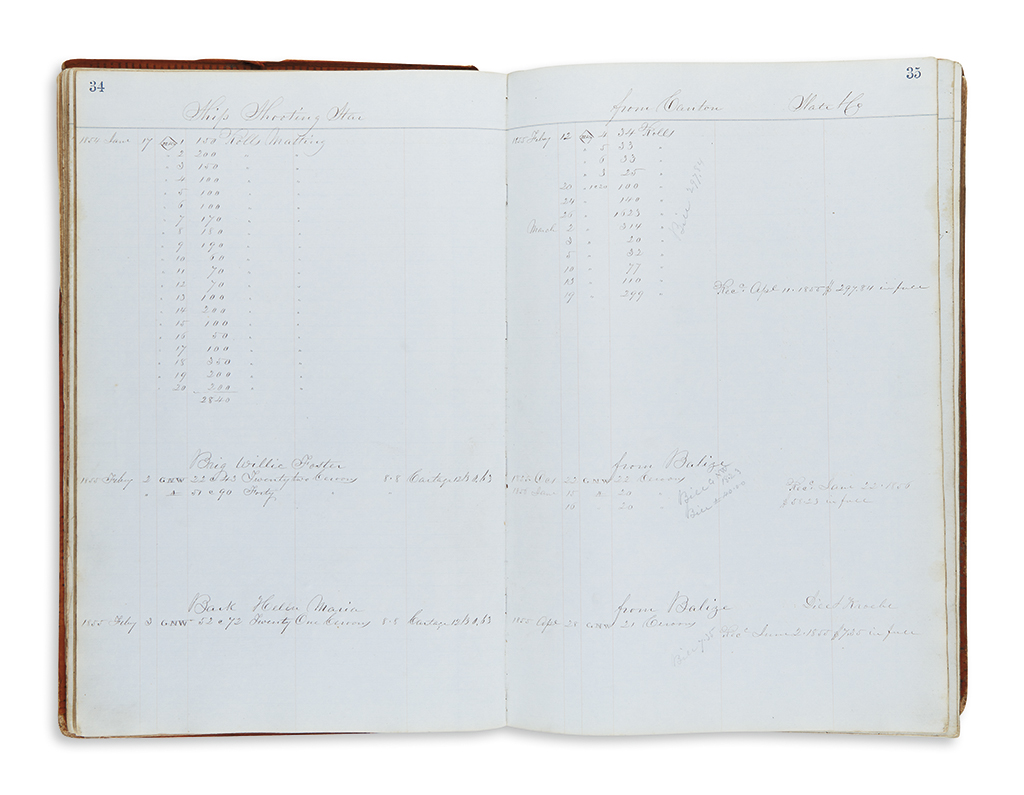 34
Ship Shooting Star
1854 June 17 1 150 Rolls Matting
" 2 200 " "
" 3 150 " "
" 4 100 " "
" 5 100 " "
" 6 100 " "
" 7 170 " "
" 8 180 " "
" 9 190 " "
" 10 60 " "
" 11 70 " "
" 12 70 " "
" 13 100 " "
" 14 200 " "
" 15 100 " "
" 16 50 " "
" 17 100 " "
" 18 350 " "
" 19 200 " "
" 20 200 " "
2840
Brig Willie Foster
1855 Feby 2 GNW 22 Twenty two Ceroons 8.8 Cartage
" 51 @ 90 Forty " " "
Bark Helen Maria
1855 Feby 3 GNW 52 @ 72 Twenty One Ceroons 8.8 Cartage
35
from Canton
1855 Feby 12 4 34 Rolls
" 5 33 "
" 6 33 "
" 3 25 "
20 " 1020 100 "
24 " 140 "
26 " 1523 "
March 2 " 314 "
3 " 20 "
5 " 32 "
10 " 77 "
13 " 110 "
19 " 299 "
Bill 297.84
Recd. Apl 11. 1855 $297.84 in full
from Balize
22 GNW 22 Ceroons
1855 June 15 " 20 "
16 " 20 "
Recd June 22
in full
from Balize
1855 Apl 28 GNW 21 Ceroons
Recd June 2. 1855 $7.25 in full